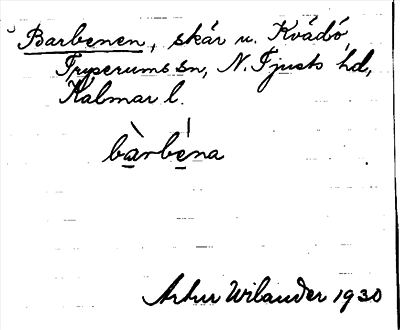 Barbenen, skär u. Kvädö,
Tryserums sn, N. Tjusts hd,
Kalmar l.
bàrbéna
Artur Wilander 1930